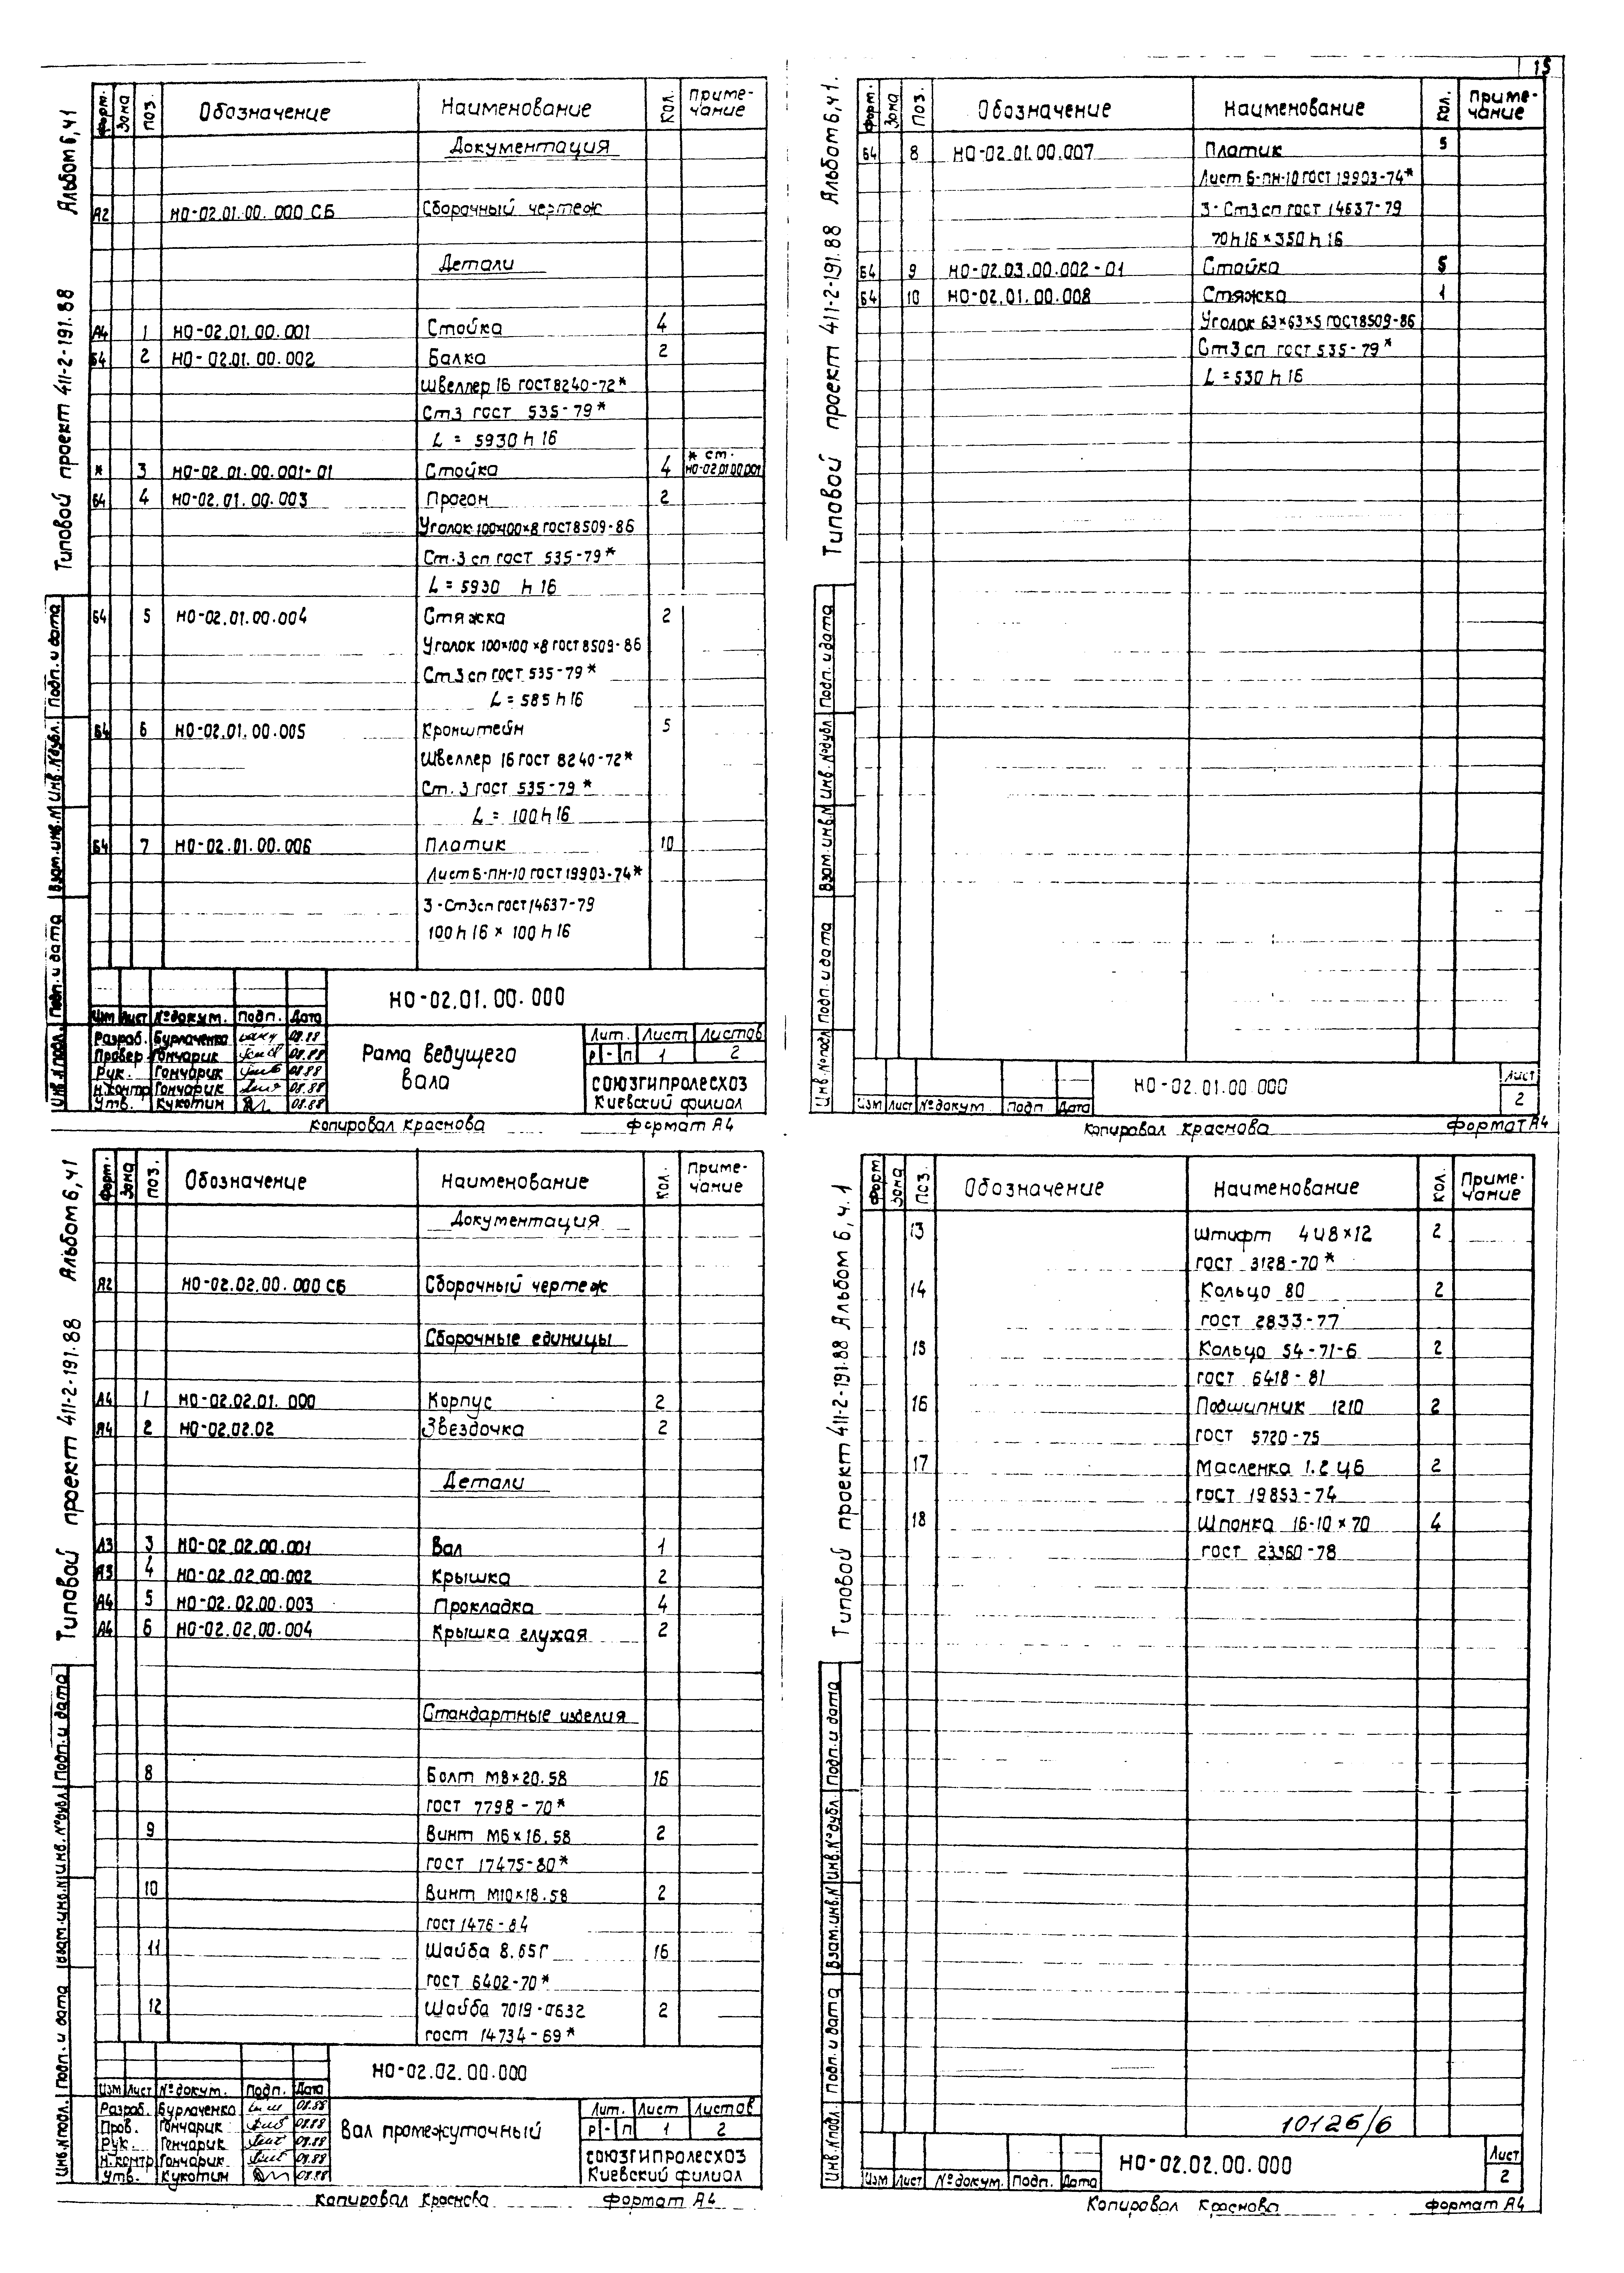 15
Типовой проект 411-2-191.88 Альбом 6, ч1
Форм. Зона Поз. Обозначение Наименование Кол. Приме-чание
Документация
А2 НО-02.01.00.000 СБ Сборочный чертеж
Детали
А4 1 НО-02.01.00.001 Стойка 4
Б4 2 НО-02.01.00.002 Балка 2
Швеллер 16 ГОСТ 8240-72*
Ст.3 ГОСТ 535-79*
L = 5930 h 16
* 3 НО-02.01.00.001-01 Стойка 4 * ст. НО-02.01.00.001
Б4 4 НО-02.01.00.003 Прогон 2
Уголок 100×100×8 ГОСТ 8509-86
Ст.3 сп ГОСТ 535-79*
L = 5930 h 16
Б4 5 НО-02.01.00.004 Стяжка 2
Уголок 100×100×8 ГОСТ 8509-86
Ст3 сп ГОСТ 535-79*
L = 585 h 16
Б4 6 НО-02.01.00.005 Кронштейн 5
Швеллер 16 ГОСТ 8240-72*
Ст. 3 ГОСТ 535-79*
L = 100 h 16
Б4 7 НО-02.01.00.006 Платик 10
Лист Б-ПН-10 ГОСТ 19903-74*
3-Ст3сп ГОСТ 14637-79
100 h 16 × 100 h 16
Инв.№подл. Подп. и дата Взам.инв.№ Инв.№дубл. Подп. и дата
НО-02.01.00.000
Изм Лист №докум. Подп. Дата
Разраб. Бурлаченко 08.88
Провер Гончарик 08.88
Рук. Гончарик 08.88
Н.контр Гончарик 08.88
Утв. Кукотин 08.88
Рама ведущего вала
Лит. Лист Листов
Р - П 1 2
СОЮЗГИПРОЛЕСХОЗ
Киевский филиал
Копировал Краснова Формат А4
Типовой проект 411-2-191.88 Альбом 6, ч1.
Форм. Зона Поз. Обозначение Наименование Кол. Приме-чание
Б4 8 НО-02.01.00.007 Платик 5
Лист Б-ПН-10 ГОСТ 19903-74*
3-Ст3сп ГОСТ 14637-79
70 h 16 × 350 h 16
Б4 9 НО-02.03.00.002-01 Стойка 5
Б4 10 НО-02.01.00.008 Стяжка 1
Уголок 63×63×5 ГОСТ 8509-86
Ст3 сп ГОСТ 535-79*
L = 530 h 16
Инв.№подл Подп. и дата Взам.инв.№ Инв.№дубл Подп. и дата
Изм Лист №докум. Подп Дата
НО-02.01.00.000
Лист
2
Копировал Краснова Формат А4
Типовой проект 411-2-191.88 Альбом 6, ч1
Форм. Зона Поз. Обозначение Наименование Кол. Приме-чание
Документация
А2 НО-02.02.00.000 СБ Сборочный чертеж
Сборочные единицы
А4 1 НО-02.02.01.000 Корпус 2
А4 2 НО-02.02.02 Звездочка 2
Детали
А3 3 НО-02.02.00.001 Вал 1
А3 4 НО-02.02.00.002 Крышка 2
А4 5 НО-02.02.00.003 Прокладка 4
А4 6 НО-02.02.00.004 Крышка глухая 2
Стандартные изделия
8 Болт М8×20.58 16
ГОСТ 7798-70*
9 Винт М6×16.58 2
ГОСТ 17475-80*
10 Винт М10×18.58 2
ГОСТ 1476-84
11 Шайба 8.65Г 16
ГОСТ 6402-70*
12 Шайба 7019-0632 2
ГОСТ 14734-69*
Инв.№подл. Подп. и дата Взам.инв.№ Инв.№дубл. Подп. и дата
НО-02.02.00.000
Изм Лист №докум. Подп. Дата
Разраб. Бурлаченко 08.88
Пров. Гончарик 08.88
Рук. Гончарик 08.88
Н.контр Гончарик 08.88
Утв. Кукотин 08.88
Вал промежуточный
Лит. Лист Листов
Р - П 1 2
СОЮЗГИПРОЛЕСХОЗ
Киевский филиал
Копировал Краснова Формат А4
Типовой проект 411-2-191.88 Альбом 6, ч.1
Форм Зона Поз. Обозначение Наименование Кол. Приме-чание
13 Штифт 4Ц8×12 2
ГОСТ 3128-70*
14 Кольцо 80 2
ГОСТ 2833-77
15 Кольцо 54-71-6 2
ГОСТ 6418-81
16 Подшипник 1210 2
ГОСТ 5720-75
17 Масленка 1.2 Ц6 2
ГОСТ 19853-74
18 Шпонка 16-10×70 4
ГОСТ 23360-78
Инв.№подл. Подп. и дата Взам.инв.№ Инв.№дубл. Подп. и дата
10126/6
Изм Лист №докум. Подп. Дата
НО-02.02.00.000
Лист
2
Копировал Краснова Формат А4